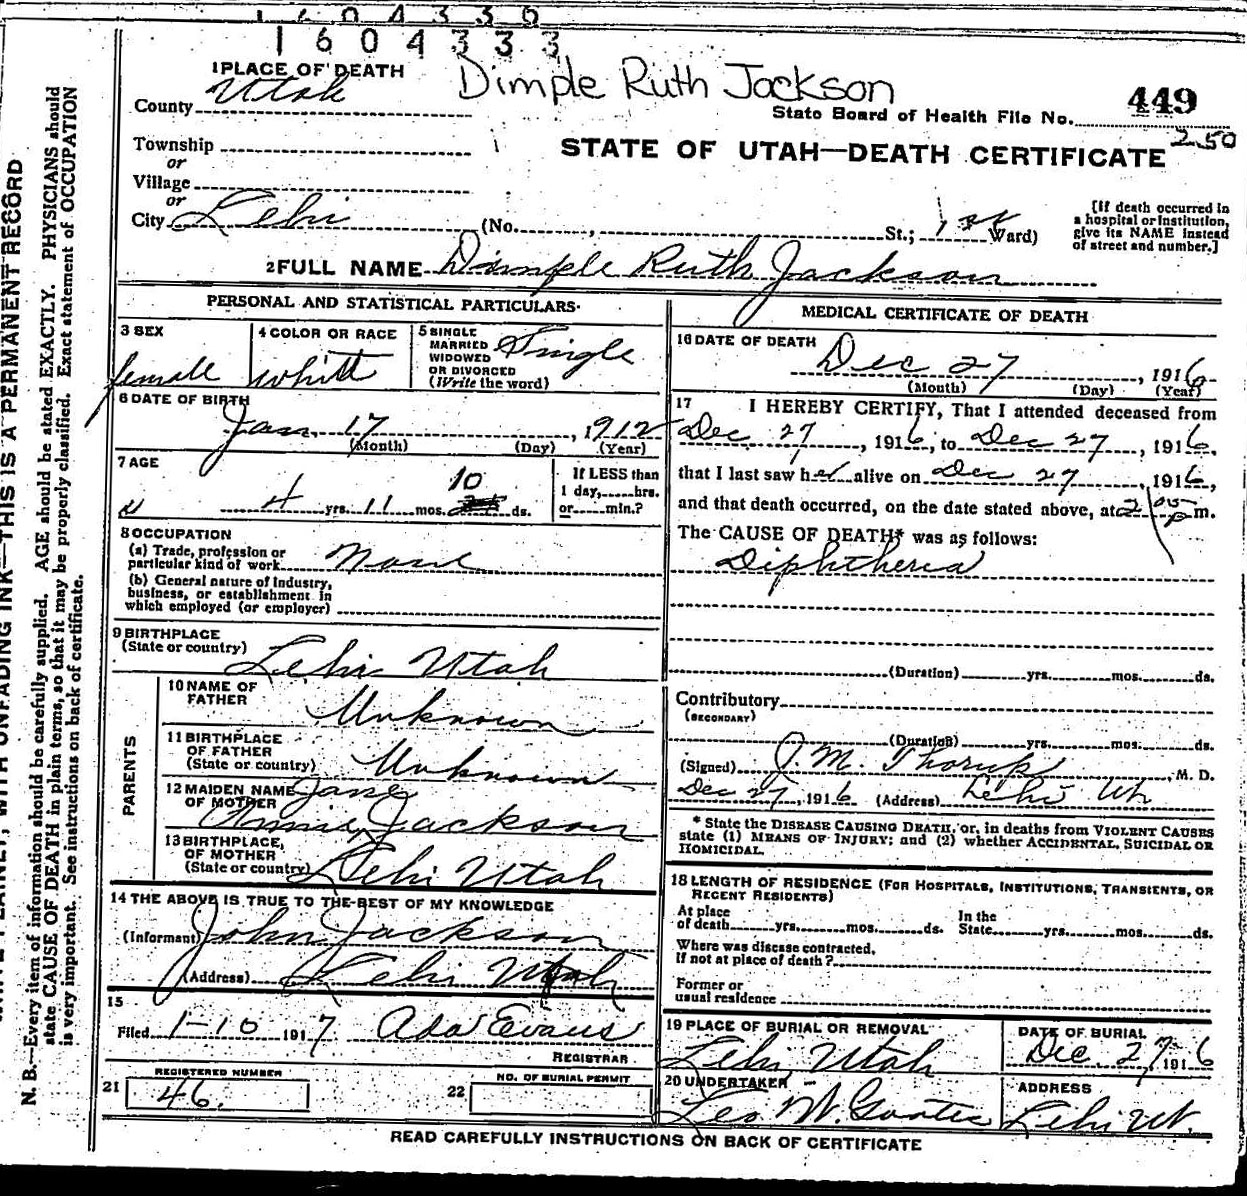 1604333
1 PLACE OF DEATH Dimple Ruth Jackson
County Utah
449
State Board of Health File No.
2.50
Township
or
STATE OF UTAH—DEATH CERTIFICATE
Village
or
City Lehi (No. , St.; 1st Ward)
[If death occurred in
a hospital or institution,
give its NAME instead
of street and number.]
2 FULL NAME Dimple Ruth Jackson
PERSONAL AND STATISTICAL PARTICULARS
3 SEX
female
4 COLOR OR RACE
white
5 SINGLE
MARRIED
WIDOWED
OR DIVORCED
(Write the word)
Single
6 DATE OF BIRTH
Jan. 17, 1912
(Month) (Day) (Year)
7 AGE
4 yrs. 11 mos. 10 ds.
If LESS than
1 day, hrs.
or min.?
8 OCCUPATION
(a) Trade, profession or
particular kind of work None
(b) General nature of industry,
business, or establishment in
which employed (or employer)
9 BIRTHPLACE
(State or country)
Lehi Utah
PARENTS
10 NAME OF
FATHER
Unknown
11 BIRTHPLACE
OF FATHER
(State or country) Unknown
12 MAIDEN NAME Jane
OF MOTHER
Annie Jackson
13 BIRTHPLACE,
OF MOTHER
(State or country) Lehi Utah
14 THE ABOVE IS TRUE TO THE BEST OF MY KNOWLEDGE
(Informant) John Jackson
(Address) Lehi Utah
15
Filed 1-10 1917 Ada Evans
REGISTRAR
21 REGISTERED NUMBER
46.
22 NO. OF BURIAL PERMIT
MEDICAL CERTIFICATE OF DEATH
16 DATE OF DEATH
Dec 27, 1916
(Month) (Day) (Year)
17 I HEREBY CERTIFY, That I attended deceased from
Dec 27, 1916, to Dec 27, 1916,
that I last saw her alive on Dec 27, 1916,
and that death occurred, on the date stated above, at 2 05 p m.
The CAUSE OF DEATH* was as follows:
Diphtheria
(Duration) yrs. mos. ds.
Contributory
(SECONDARY)
(Duration) yrs. mos. ds.
(Signed) J. M. Thorup, M. D.
Dec 27, 1916 (Address) Lehi Ut
* State the DISEASE CAUSING DEATH, or, in deaths from VIOLENT CAUSES
state (1) MEANS OF INJURY; and (2) whether ACCIDENTAL, SUICIDAL OR
HOMICIDAL.
18 LENGTH OF RESIDENCE (FOR HOSPITALS, INSTITUTIONS, TRANSIENTS, OR
RECENT RESIDENTS)
At place
of death yrs. mos. ds.
In the
State yrs. mos. ds.
Where was disease contracted,
if not at place of death?
Former or
usual residence
19 PLACE OF BURIAL OR REMOVAL
Lehi, Utah
DATE OF BURIAL
Dec. 27, 1916
20 UNDERTAKER
Leo W. Goates
ADDRESS
Lehi Ut.
READ CAREFULLY INSTRUCTIONS ON BACK OF CERTIFICATE
THIS IS A PERMANENT RECORD
N. B.—Every item of information should be carefully supplied. AGE should be stated EXACTLY. PHYSICIANS should
state CAUSE OF DEATH in plain terms, so that it may be properly classified. Exact statement of OCCUPATION
is very important. See instructions on back of certificate.